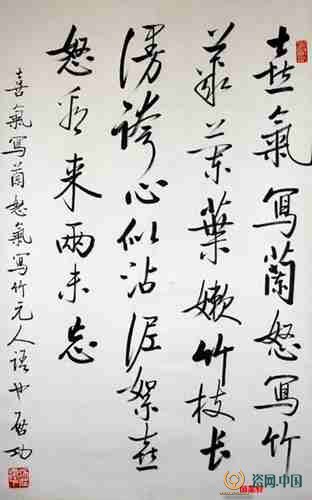 喜氣寫蘭怒寫竹
叢蘭葉嫩竹枝長
漫誇心似沾泥絮喜
怒年来兩未忘
喜氣寫蘭怒氣寫竹元人語也 启功
资网.中国